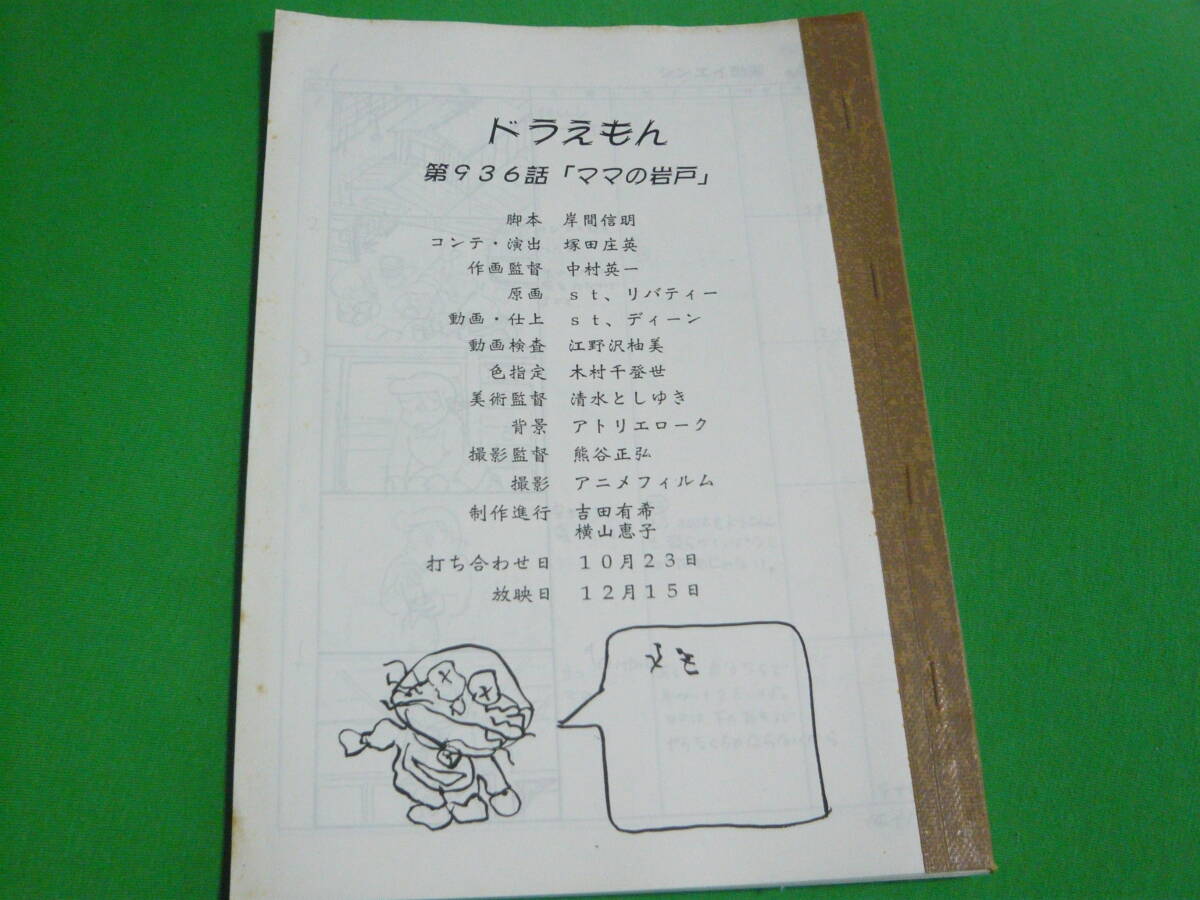 ドラえもん
第９３６話「ママの岩戸」
脚本　岸間信明
コンテ・演出　塚田庄英
作画監督　中村英一
原画　ｓｔ、リバティー
動画・仕上　ｓｔ、ディーン
動画検査　江野沢柚美
色指定　木村千登世
美術監督　清水としゆき
背景　アトリエローク
撮影監督　熊谷正弘
撮影　アニメフィルム
制作進行　吉田有希
横山恵子
打ち合わせ日　１０月２３日
放映日　１２月１５日
メモ